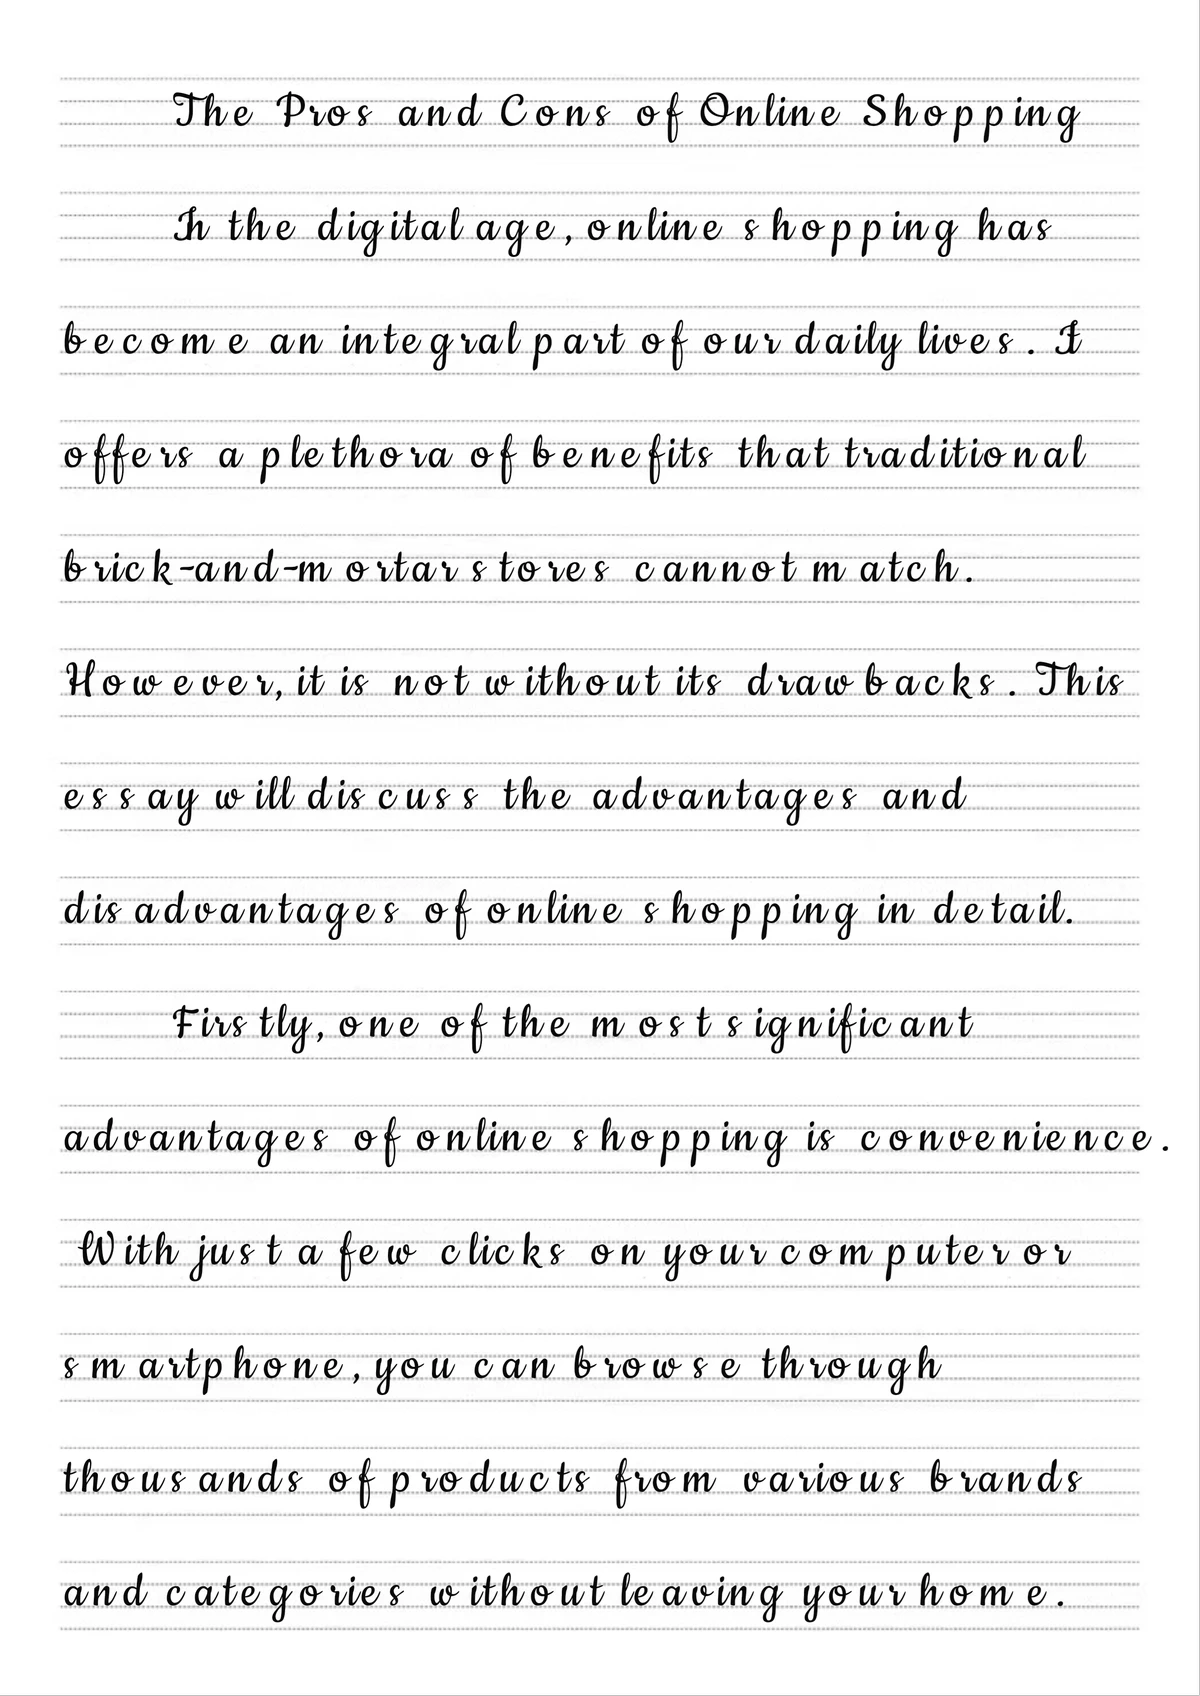 The Pros and Cons of Online Shopping
In the digital age, online shopping has
become an integral part of our daily lives. It
offers a plethora of benefits that traditional
brick-and-mortar stores cannot match.
However, it is not without its drawbacks. This
essay will discuss the advantages and
disadvantages of online shopping in detail.
Firstly, one of the most significant
advantages of online shopping is convenience.
With just a few clicks on your computer or
smartphone, you can browse through
thousands of products from various brands
and categories without leaving your home.